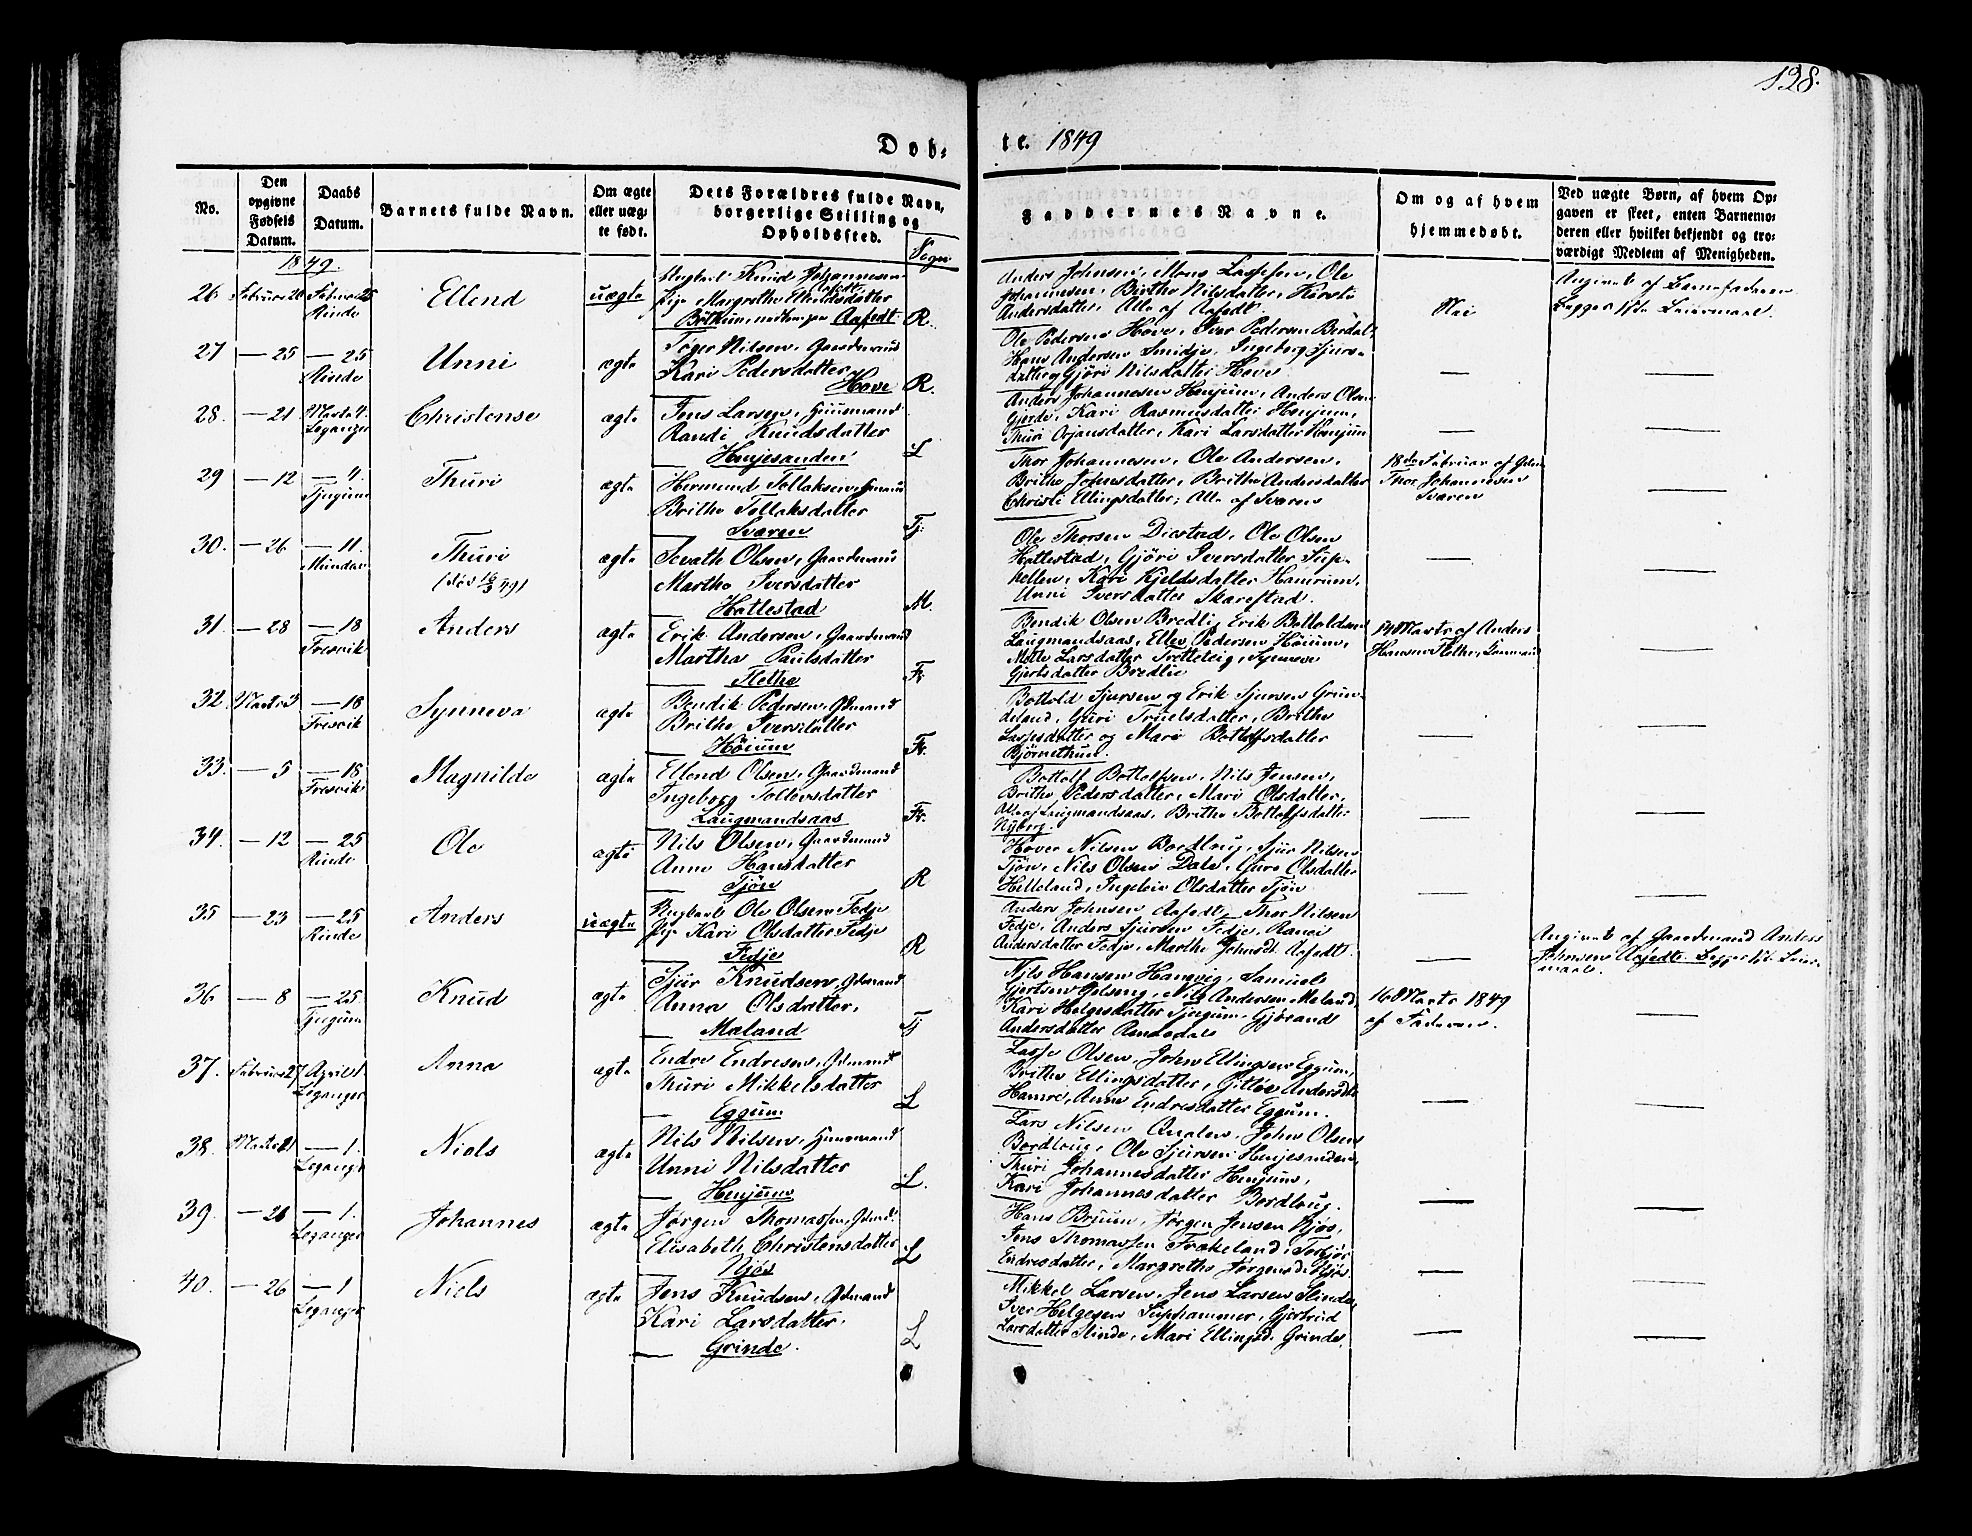 128.
Døb-
te. 1849
No.
Den opgivne Fødsels Datum.
Daabs Datum.
Barnets fulde Navn.
Om ægte eller uægte født.
Dets Forældres fulde Navn, borgerlige Stilling og Opholdssted.
Sogn
Faddernes Navne.
Om og af hvem hjemmedøbt.
Ved uægte Børn, af hvem Opgaven er skeet, enten Barnemoderen eller hvilket bekjendt og troværdigt Medlem af Menigheden.
1849.
26 Februar 20 Februar 25 Rinde
Ellend
uægte
Ungkarl Knud Johannesen Aafedt
Pige Margrethe
Aafedt R.
Anders Johnsen, Mons Lassesen, Ole
Johannesen, Birthe Nilsdatter, Kirsti
Andersdatter, Alle af Aafedt.
Nei
Angivet af Barnefaderen
Begges 1ste Leiermaal.
27 — 25 — 25 Rinde
Unni
ægte
Tøger Nilsen, Gaardmand
Kari Pedersdatter
Hove R.
Ole Pedersen Hove, Iver Pedersen Berdal,
Hans Andersen Smidje, Ingeborg Sjurs-
datter og Gjøri Nilsdatter Hove
28. — 21 Marts 4. Leganger
Christense
ægte
Jens Larsen, Huusmand
Randi Knudsdatter
Henjesanden L
Anders Johannesen Henjum, Anders Olsen
Gjerde, Kari Rasmusdatter Henjum,
Thuri Orjansdatter, Kari Larsdatter Henjum
29 — 12 — 4. Tjugum
Thuri
ægte
Hermund Tollaksen, Gmand
Brithe Tollaksdatter
Sværen Tj:
Thor Johannesen, Ole Andersen,
Brithe Johnsdatter, Brithe Andersdatter
Christi Ellingsdatter; Alle af Sværen
18de Februar af Gdm
Thor Johannesen
Sværen
30. — 26 — 11. Mundal
Thuri
(død 16/3 49)
ægte
Sevath Olsen, Gaardmand
Martha Iversdatter
Hatlestad M.
Ole Thorsen Digstad, Ole Olsen
Hatlestad, Gjøri Iversdatter Sup-
hellen, Kari Kjeldsdatter Hamrum,
Unni Iversdatter Skarestad.
31. — 28 — 18 Fresvik
Anders
ægte
Erik Andersen, Gaardmand
Martha Paulsdatter
Flethe Fr
Bendik Olsen Bredli, Erik Botholdsen
Laugmandsaas, Ellev Pedersen Høium,
Mette Larsdatter Tretteteig, Synneve
Gjertsdatter Bredlie
14 Marts af Anders
Hansen Flethe, Gaarmand
32. Marts 3 — 18 Fresvik
Synneva
ægte
Bendik Pedersen, Gdmand
Brithe Iversdatter
Høium Fr.
Bothold Sjursen og Erik Sjursen Grun-
deland, Guri Truelsdatter, Brithe
Lassesdatter og Mari Botholfsdatter
Bjørnethun.
33. — 5 — 18 Fresvik
Magnilde
ægte
Ellend Olsen, Gaardmand
Ingeborg Tollevsdatter
Laugmandsaas Fr.
Botolf Botolfsen, Nils Jensen,
Brithe Pedersdatter, Mari Olsdatter,
Alle af Laugmandsaas, Brithe Botolfsdatter
Nyborg.
34. — 12 — 25 Rinde
Ole
ægte
Nils Olsen, Gaardmand
Anne Hansdatter
Tjøn R
Haver Nilsen Bordlaug, Sjur Nilsen
Tjøn, Nils Olsen Dale, Guro Olsdatter
Helleland, Ingeleiv Olsdatter Tjøn
35 — 23 — 25 Rinde
Anders
uægte
Ungkarl Ole Olsen Fedje
Pige Kari Olsdatter Fedje
Fedje R
Anders Johnsen Aafedt, Thor Nilsen
Fedje, Anders Sjursen Fedje, Ranei
Andersdatter Fedje, Marthe Johnsdt. Aafedt.
Angivet af Gaardmand Anders
Johnsen Aafedt. Begges 1ste Leier-
maal.
36 — 8 — 25. Tjugum
Knud
ægte
Sjur Knudsen, Gdmand
Anna Olsdatter,
Meland Tj
Nils Hansen Hangvig, Samuel
Gjertsen, Nils Andersen Meland,
Kari Helgesdatter Tjugum, Gjørand
Andersdatter Ramedale
16 Marts 1849
af Faderen.
37. Februar 27 April 1 Leganger
Anna
ægte
Endre Endresen, Gdmand
Thuri Mikkelsdatter
Eggum L
Lasse Olsen, John Ellingsen Eggum,
Brithe Ellingsdatter, Gitløv Andersdtr
Hamre, Anne Endresdatter Eggum.
38. Marts 21 — 1. Leanger
Niels
ægte
Nils Nilsen, Huusmand
Unni Nilsdatter
Henjum L.
Lars Nilsen Qvalen, John Olsen
Bordlaug, Ole Sjursen Henjesanden,
Thuri Johannesdatter Henjum,
Kari Johannesdatter Bordlaug.
39. — 26 — 1. Leganger
Johannes
ægte
Jørgen Thomassen, Gdmd.
Elisabeth Christensdatter
Njøs L
Hans Bruun, Jørgen Jensen Njøs,
Jens Thomassen Frækeland, Torbjør
Endresdatter, Margrethe Jørgensd. Njøs.
40. — 26 — 1 Leganger
Niels
ægte
Jens Knudsen, Gdmand
Kari Larsdatter,
Grinde. L
Mikkel Larsen, Jens Larsen Slinde,
Iver Helgesen Suphammer, Gjertrud
Larsdatter Slinde, Mari Ellingsd. Grinde.